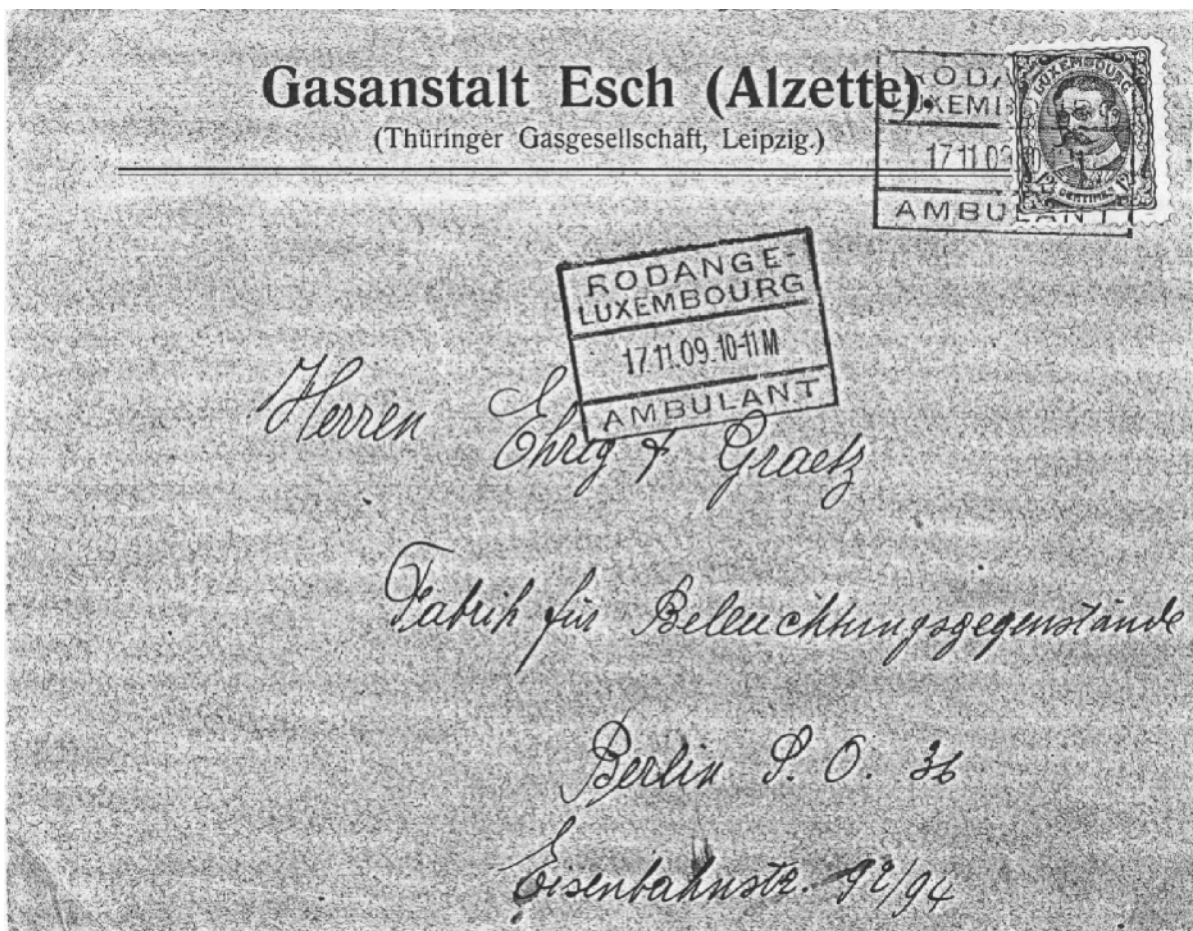 Gasanstalt Esch (Alzette).
(Thüringer Gasgesellschaft, Leipzig.)
LUXEMBOURG
CENTIMES
LUXEMB
17 11 09
AMBULANT
RODANGE-
LUXEMBOURG
17.11.09.10-11M
AMBULANT
Herren Ehrig & Graetz
Fabrik für Beleuchtungsgegenstände
Berlin S. O. 36
Eisenbahnstr. 92/94